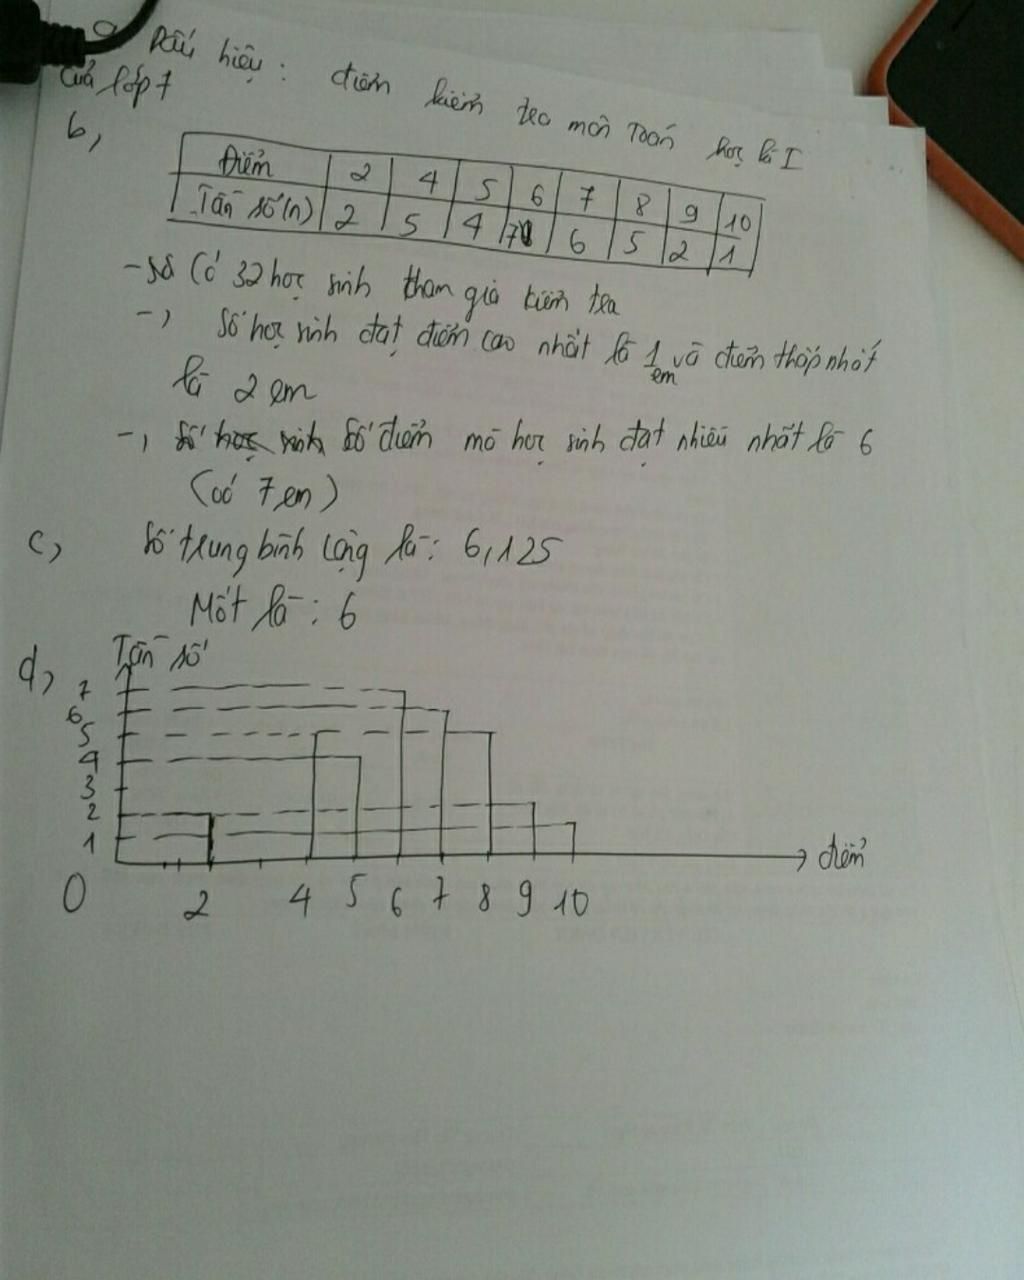 a, Dấu hiệu: điểm kiểm tra môn Toán học kì I
của lớp 7
b,
Điểm 2 4 5 6 7 8 9 10
Tần số (n) 2 5 4 7 6 5 2 1
- Có 32 học sinh tham gia kiểm tra
-, Số học sinh đạt điểm cao nhất là 1 em và điểm thấp nhất
là 2 em
-, Số điểm mà học sinh đạt nhiều nhất là 6
(có 7 em)
c, Số trung bình cộng là: 6,125
Mốt là: 6
d, Tần số
7
6
5
4
3
2
1
điểm
0 2 4 5 6 7 8 9 10